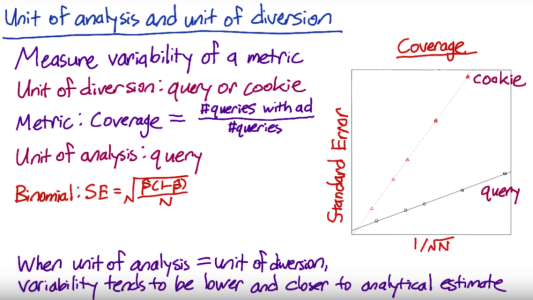 Unit of analysis and unit of diversion
Measure variability of a metric
Unit of diversion: query or cookie
Metric: Coverage = #queries with ad / #queries
Unit of analysis: query
Binomial: SE = √(p̂(1-p̂)/N)
Coverage
cookie
query
Standard Error
1/√N
When unit of analysis = unit of diversion,
variability tends to be lower and closer to analytical estimate